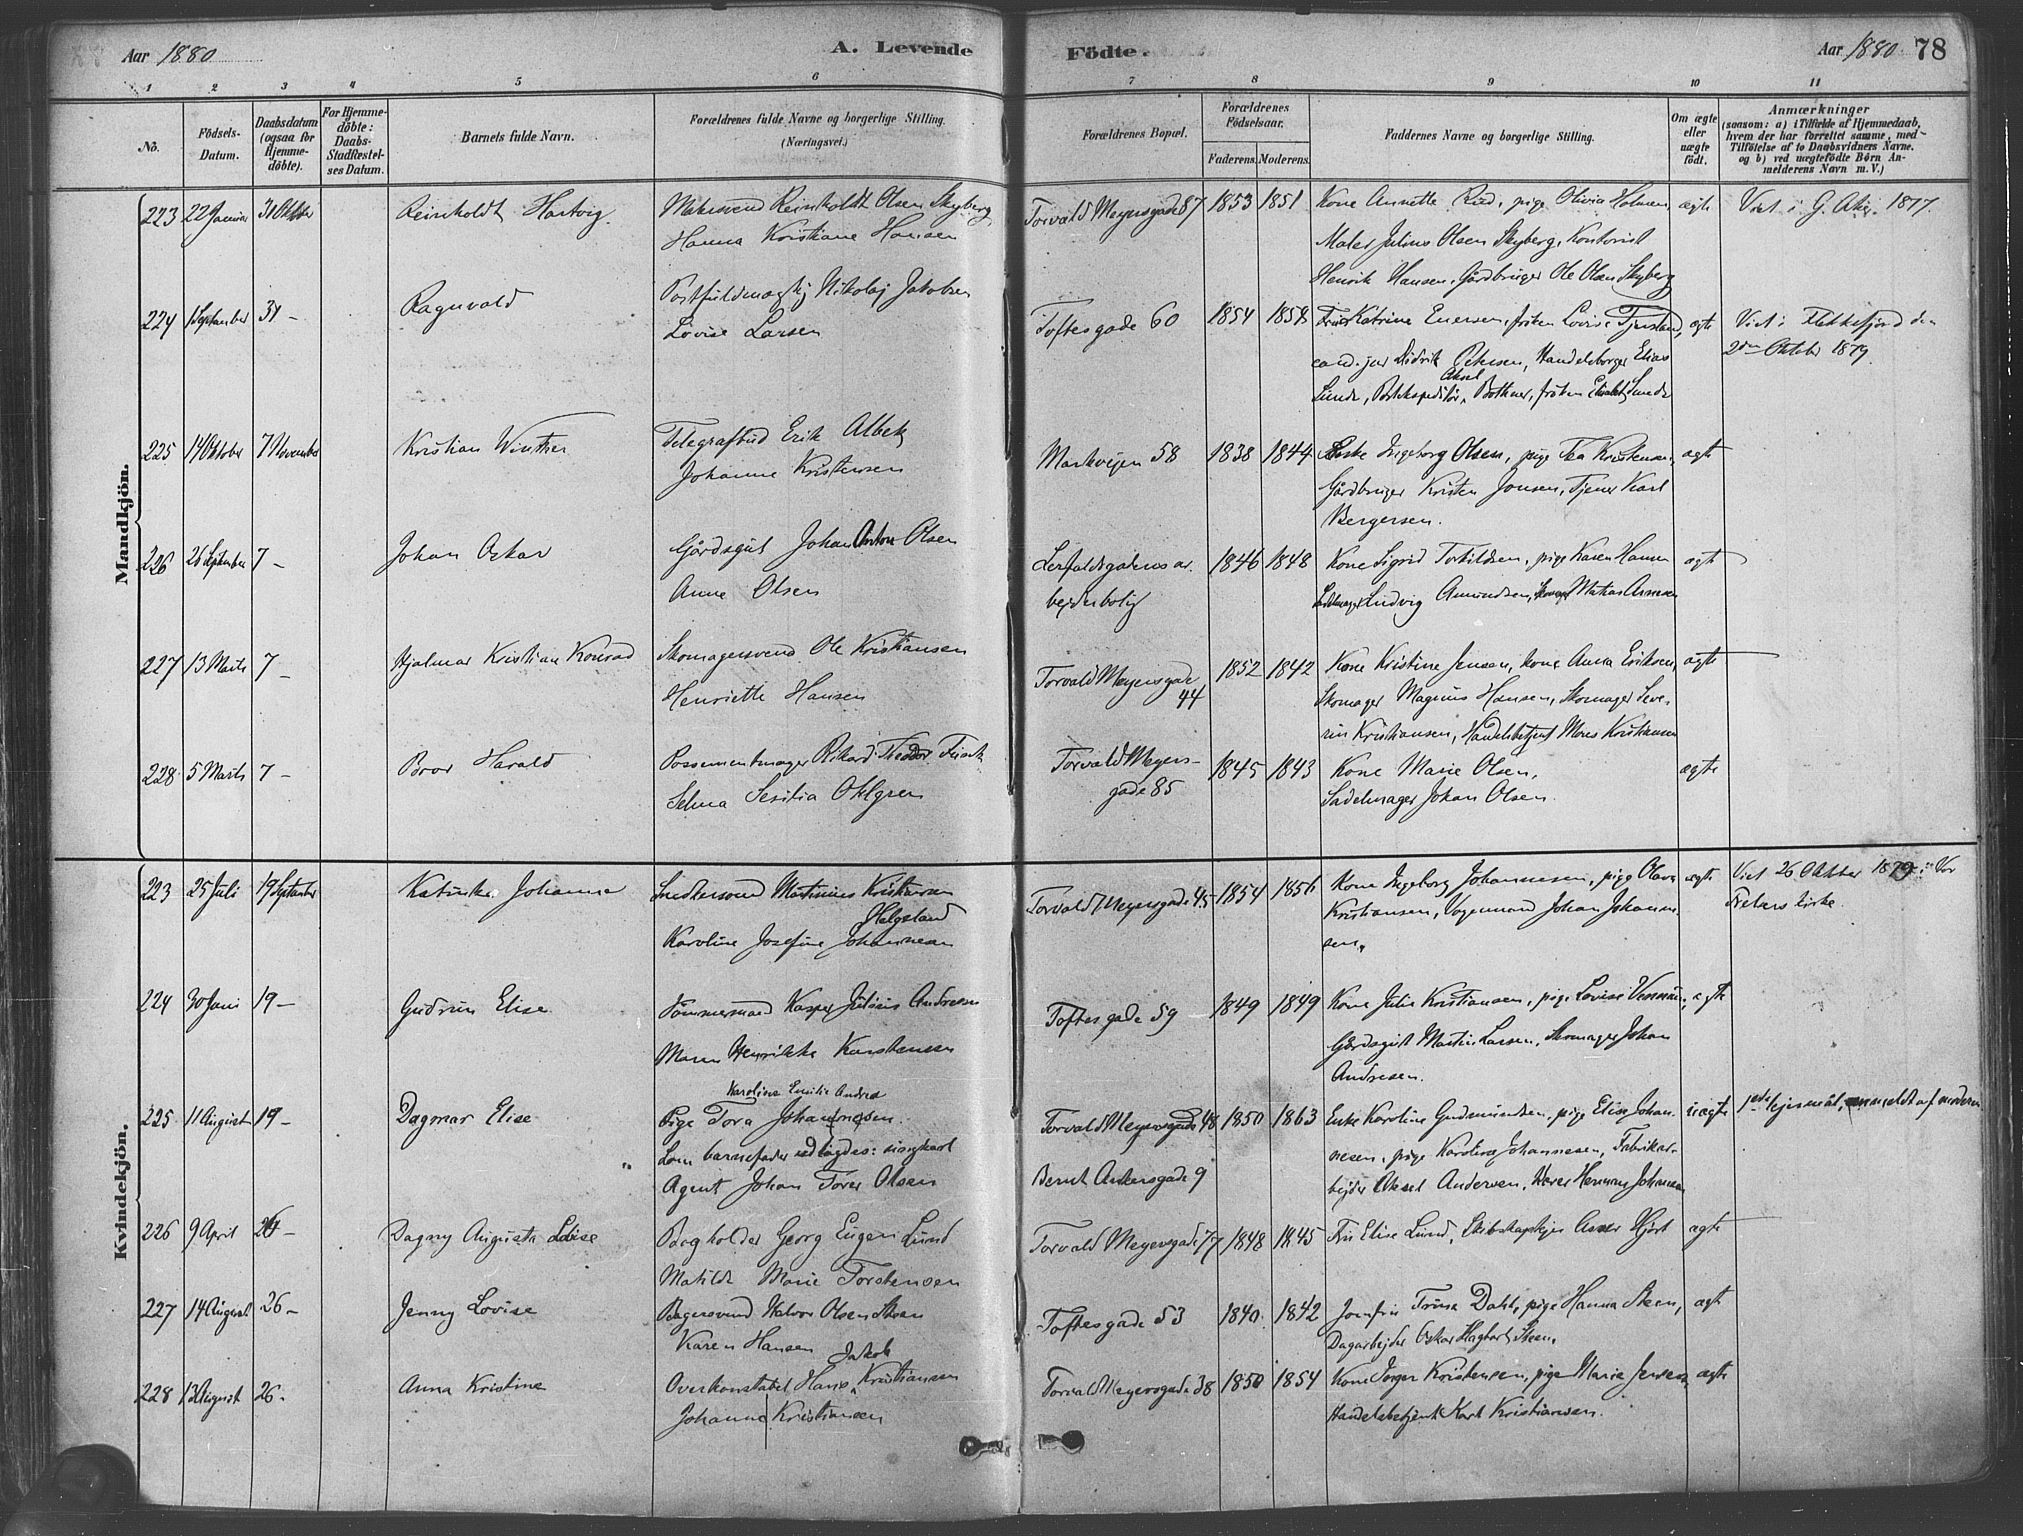 Aar 1880
A. Levende
Födte.
Aar 1880
78
1 2 3 4 5 6 7 8 9 10 11
No.
Födsels-
Datum.
Daabsdatum
(ogsaa for
Hjemme-
döbte).
For Hjemme-
döbte:
Daabs-
Stadfæstel-
ses Datum.
Barnets fulde Navn.
Forældrenes fulde Navne og borgerlige Stilling.
(Næringsvei.)
Forældrenes Bopæl.
Forældrenes
Födselsaar.
Faderens. Moderens.
Faddernes Navne og borgerlige Stilling.
Om ægte
eller
uægte
födt.
Anmærkninger
(saasom: a) i Tilfælde af Hjemmedaab,
hvem der har forrettet samme, med-
Tilföielse af to Daabsvidners Navne.
og b) ved uægtefödte Börn An-
melderens Navn m. V.)
Mandkjön.
223 22 Januar 31 Oktober Reinholdt Hartvig Malersvend Reinholdt Olsen Skyberg Torvald Meyersgade 87 1853 1851 Kone Annette Rud, pige Olivia Holmen, ægte Viet i G. Aker 1877.
Hanna Kristiane Hansen Maler Julius Olsen Skyberg, Kontorist
Henrik Hansen, Gårdbruger Ole Olsen Skyberg
224 1 September 31 - Ragnvald Postfuldmægtig Nikolaj Jakobsen Toftesgade 60 1854 1858 Katrine Enersen, frøken Lovise Tjersland, ægte Viet i Flekkefjord den
Lovise Larsen cand. jur Didrik Petersen, Handelsborger Elias 2den Oktober 1879.
Aksel
Lunde, Postekspeditør Bothner, frøken Elisabet Lunde
225 14 Oktober 7 November Kristian Winther Telegrafbud Erik Albek Markvejen 58 1838 1844 Enke Ingeborg Olsen, pige Tea Kristensen, ægte
Johanne Kristensen Gårdbruger Kristen Jonsen, Tjener Karl
Bergersen.
226 26 September 7 - Johan Oskar Gårdsgut Johan Anton Olsen Lerfaldsgadens ar- 1846 1848 Kone Sigrid Torkildsen, pige Karen Hansen ægte
Anne Olsen bejderbolig Sadelmager Ludvig Amundsen, Skomager Matias Arnesen
227 13 Marts 7 - Hjalmar Kristian Konrad Skomagersvend Ole Kristiansen Torvald Meyersgade 1852 1842 Kone Kristine Jensen, kone Anna Eriksen, ægte
Henriette Hansen 44 Skomager Magnus Hansen, Skomager Seve-
rin Kristiansen, Handelsbetjent Mores Kristiansen
228 5 Marts 7 - Bror Harald Possementmager Rikard Theodor Frisch Torvald Meyers- 1845 1843 Kone Marie Olsen, ægte
Selma Sesilia Ohlgren gade 85 Sadelmager Johan Olsen.
Kvindekjön.
223 25 Juli 19 September Katinka Johanne Snedkersvend Martinius Kristiansen Torvald Meyersgade 45 1854 1856 Kone Ingeborg Johannesen, pige Olava ægte Viet 26 Oktober 1879 i Vor
Helgeland Kristiansen, Vognmand Johan Johanne- Frelsers kirke.
Karoline Josefine Johannesen sen.
224 30 Juni 19 - Gudrun Elise Tømmermand Kasper Julius Andresen Toftesgade 59 1849 1849 Kone Julie Kristiansen, pige Lovise ægte
Maren Henrikke Karstensen Gårdsgut Martin Larsen, Skomager Johan
Andresen.
Karoline Emilie Andrea
225 11 August 19 - Dagmar Elise Pige Tora Johannesen. Torvald Meyersgade 48 1850 1863 Enke Karoline Gudmundsen, pige Elise Johan- uægte 1ste lejermål, anmeldt af moderen
Som barnefader udlagdes: ungkarl Bernt Ankersgade 9 nesen, pige Karoline Johannesen, Fabrikar-
Agent Johan Tover Olsen bejder Aksel Andersen, Herman Johnsen
226 9 April 26 - Dagny Augusta Lovise Bogholder Georg Eugen Lund Torvald Meyersgade 77 1848 1845 Fru Elise Lund, Skibskaptejn Asser Hjort ægte
Matilde Marie Torstensen
227 14 August 26 - Jenny Lovise Bagersvend Halvor Olsen Steen Toftesgade 53 1840 1842 Jomfru Trina Dahl, pige Hanna Steen, ægte
Karen Hansen Dagarbejder Oskar Hagbart Steen.
Jakob
228 13 August 26 - Anna Kristine Overkonstabel Hans Kristiansen Torvald Meyersgade 38 1850 1854 Kone Kristensen, pige Marie Jensen, ægte
Johanne Kristiansen Handelsbetjent Karl Kristiansen.